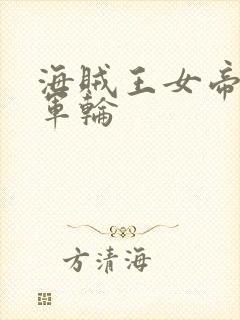 海贼王女帝
軍輪
方清海